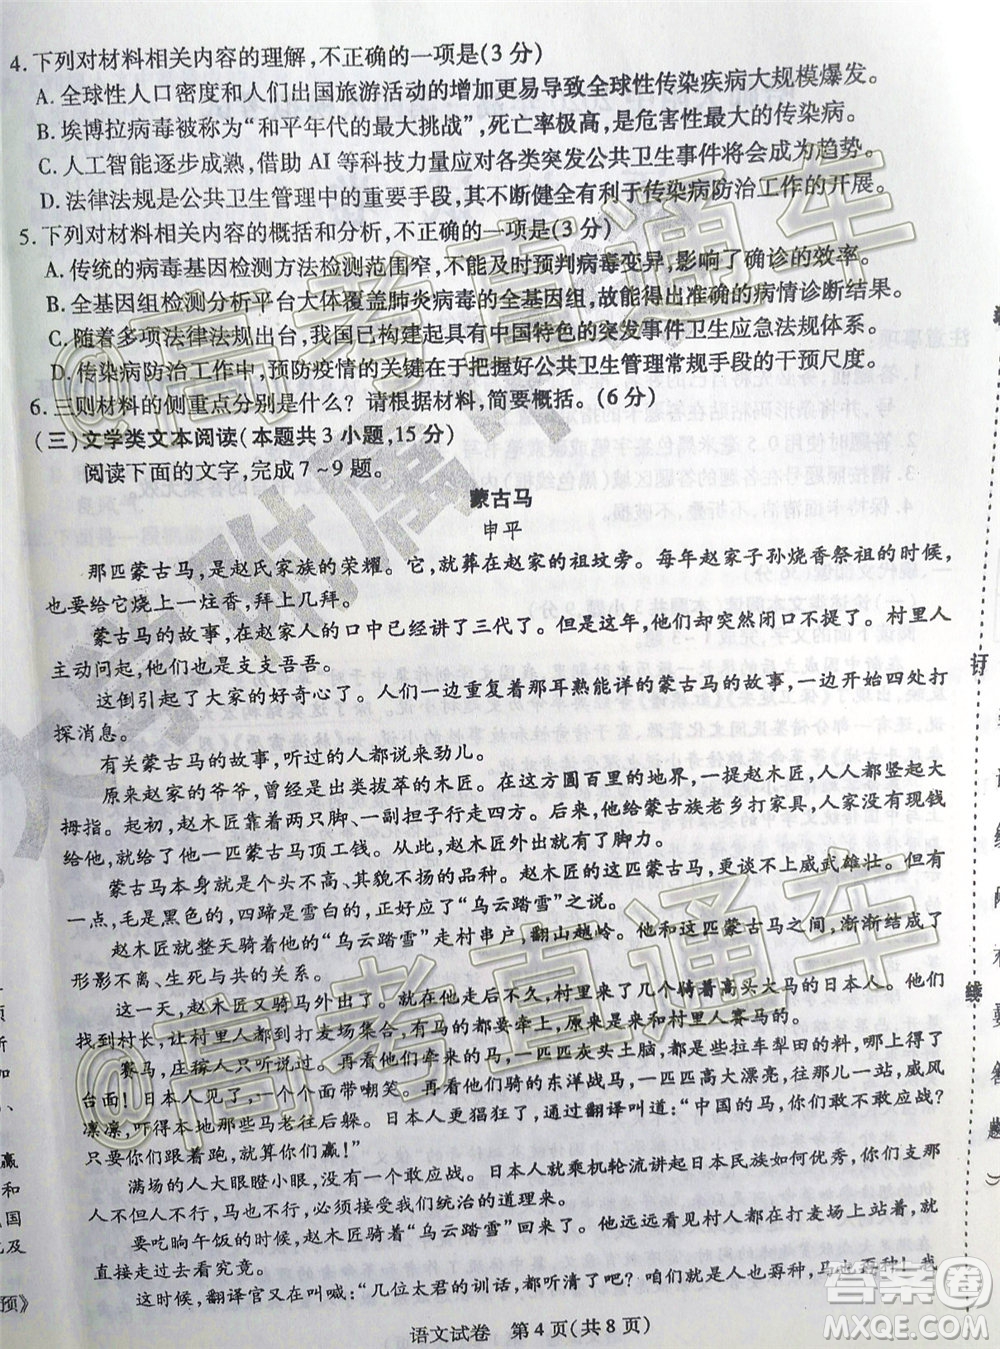 4.下列对材料相关内容的理解,不正确的一项是(3分)
A.全球性人口密度和人们出国旅游活动的增加更易导致全球性传染疾病大规模爆发。
B.埃博拉病毒被称为“和平年代的最大挑战”,死亡率极高,是危害性最大的传染病。
C.人工智能逐步成熟,借助AI等科技力量应对各类突发公共卫生事件将会成为趋势。
D.法律法规是公共卫生管理中的重要手段,其不断健全有利于传染病防治工作的开展。
5.下列对材料相关内容的概括和分析,不正确的一项是(3分)
A.传统的病毒基因检测方法检测范围窄,无法及时预判病毒变异,影响了确诊的效率。
B.全基因组检测分析平台大体覆盖肺炎病毒的全基因,故能够得出准确的病情诊断结果。
C.随着多项法律法规出台,我国已构建起具有中国特色的突发公共卫生应急法规体系。
D.传染病防治工作中,预防疫情的关键在于把握好公共卫生管理常规手段的干预尺度。
6.三则材料的侧重点分别是什么?请根据材料,简要概括。(6分)
(三)文学类文本阅读(本题共3小题,15分)
阅读下面的文字,完成7~9题。
蒙古马
申平
那匹蒙古马,是赵氏家族的荣耀。它,就葬在赵家的祖坟旁。每年赵家子孙烧香祭祖的时候,
也要给它烧上一炷香,拜上几拜。
蒙古马的故事,在赵家人的口中讲了三代了。可是,后来赵家人突然闭口不讲了。村里人
主动问起,他们也是支支吾吾。
这倒引起了大家的好奇心了。人们一边重复着那耳熟能详的蒙古马的故事,一边开始四处打
探消息。
有关蒙古马的故事,听过的人都说来劲儿。
原来赵家的爷爷,曾经是出类拔萃的木匠。在这方圆百里的地界,一提起赵木匠,人人都竖大
拇指。起初,赵木匠靠着两只脚、一副担子行走四方。后来,他去给蒙古族老乡打家具,人家没有现钱
给他,就给他一匹蒙古马顶工钱。从此,赵木匠就有了脚力。
蒙古马本身就是个头不高、其貌不扬的品种。赵木匠的这匹蒙古马,更谈不上威武雄壮。但有
一点,毛是黑色的,四蹄是雪白的,正好应了“乌云踏雪”之说。
赵木匠就整天骑着他的“乌云踏雪”走村串户,翻山越岭。他和这匹蒙古马之间,渐渐结成了
形影不离、生死与共的关系。
这一天,赵木匠又骑马外出了。在他走后不久,村里来了几个骑着高头大马的日本人。他们
找来村长,让村里人都到打麦场集合,有马的都要牵上,原来是日本人要和村里人赛马的。
赛马,庄稼人只听说过。看看他们手里牵的马,一匹匹灰头土脸,都是些拉车犁田的,哪上得了
台面!日本人见了,一个个面带嘲笑。看看他们骑的东洋战马,一匹匹高大漂亮,往那里一站,威风
凛凛,吓得本地马忙着往后躲。日本人更猖狂了,通过翻译叫道:“中国的马,你们敢不敢应战?
只要你们跟着跑,就算你们赢!”
满场的人大眼瞪小眼,没有一个敢应战。日本人就乘机轮流讲起日本民族如何优秀,你们支那
人不但人不行,马也不行,必须接受我们统治的道理来。
要吃晌午饭的时候,赵木匠骑着“乌云踏雪”回来了。他远远看见村人都在打麦场上站着,就
直接走过去看究竟。
这时候,翻译官又在叫喊:“几位太君的训话,都听清了吧?咱们就是人也孬种,马也孬种!我
语文试卷 第4页(共8页)